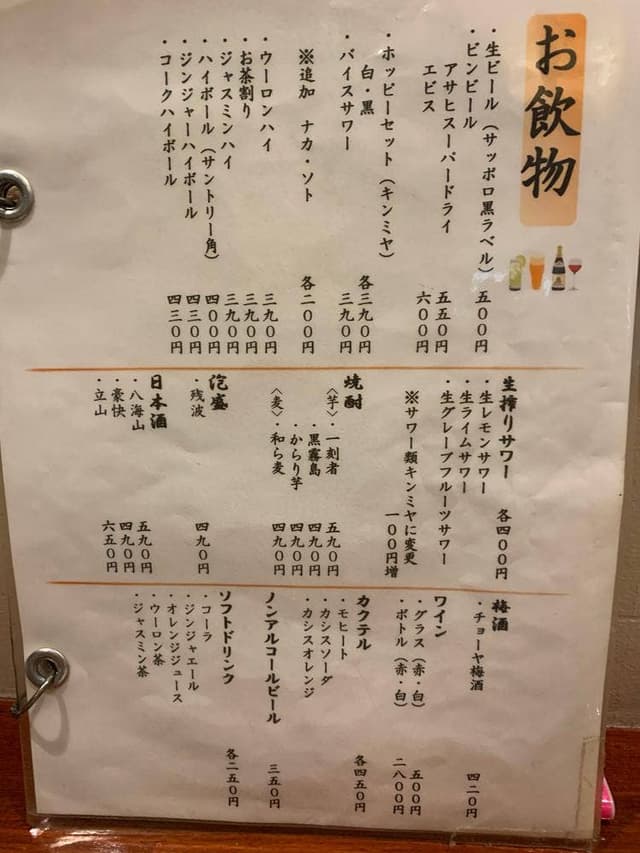 お飲物
・生ビール（サッポロ黒ラベル）五〇〇円
・ビンビール
アサヒスーパードライ 五五〇円
エビス 六〇〇円
・ホッピーセット（キンミヤ）
白・黒 各三九〇円
・バイスサワー 三九〇円
※追加 ナカ・ソト 各二〇〇円
・ウーロンハイ 三九〇円
・お茶割り 三九〇円
・ジャスミンハイ 三九〇円
・ハイボール（サントリー角）四〇〇円
・ジンジャーハイボール 四三〇円
・コークハイボール 四三〇円
生搾りサワー 各四〇〇円
・生レモンサワー
・生ライムサワー
・生グレープフルーツサワー
※サワー類キンミヤに変更
一〇〇円増
焼酎
〈芋〉・一刻者 五九〇円
・黒霧島 四九〇円
・からり芋 四九〇円
〈麦〉・和ら麦 四九〇円
泡盛
・残波 四九〇円
日本酒
・八海山 五九〇円
・豪快 四九〇円
・立山 六五〇円
梅酒
・チョーヤ梅酒 四二〇円
ワイン
・グラス（赤・白） 五〇〇円
・ボトル（赤・白） 二八〇〇円
カクテル 各四五〇円
・モヒート
・カシスソーダ
・カシスオレンジ
ノンアルコールビール 三五〇円
ソフトドリンク 各二五〇円
・コーラ
・ジンジャエール
・オレンジジュース
・ウーロン茶
・ジャスミン茶